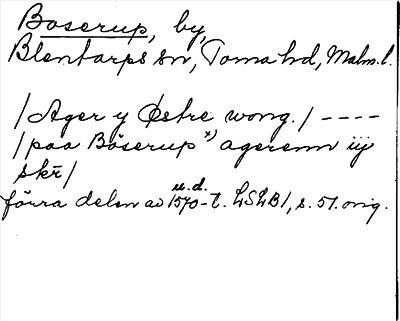 Boserup, by,
Blentarps sn, Torna hd, Malm. l.
/ Ager y Østre wong. / ----
/ paa Böserup x) agerenn iij
skr̄ /
u.d.
förra delen av 1570-t. LSLB1, s. 51. orig.